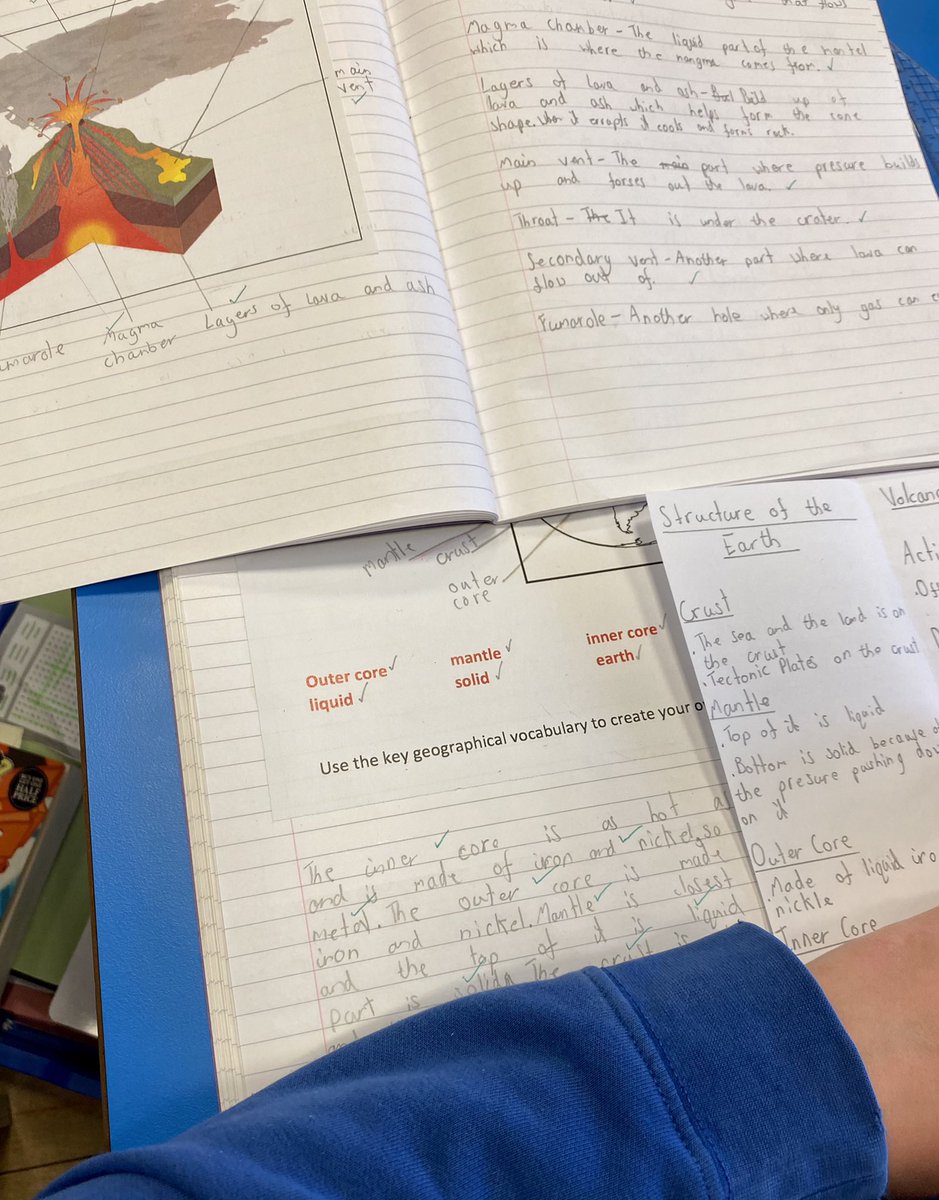 that flows
Magma chamber - The liquid part of the mantel
which is where the mangma comes from.
Layers of lava and ash - Build up of
lava and ash which helps form the cone
shape. When it errupts it cools and forms rock.
Main vent - The main part where presure builds
up and forses out the lava.
Throat - The It is under the crater.
Secondary vent - Another part where lava can
flow out of.
Fumarole - Another hole where only gas can
main
vent
marole
Magma
chamber
Layers of lava and ash
mantle
crust
outer
core
Outer core
liquid
mantle
solid
inner core
earth
Use the key geographical vocabulary to create your
The inner core is as hot
and is made of iron and nickel, so
metal. The outer core is made
iron and nickel. Mantle is closest
and the top of it is liquid
part is solid. The crust is
Structure of the
Earth
Crust
. The sea and the land is on
the crust
. Tectonic Plates on the crust
Mantle
. Top of it is liquid
. Bottom is solid because
the presure pushing
on it
Outer Core
. Made of liquid
nickle
Inner Core
BUY ONE
GET ONE
HALF
PRICE